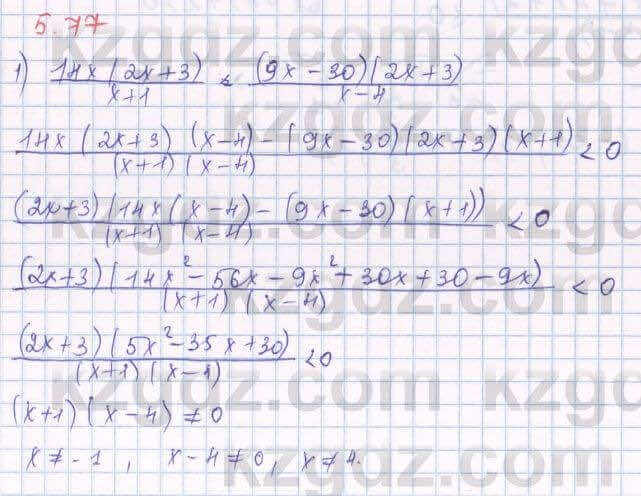 5.77
1) 14x(2x+3)/x+1 < (9x-30)(2x+3)/x-4
14x(2x+3)(x-4)-(9x-30)(2x+3)(x+1)/(x+1)(x-4) < 0
(2x+3)(14x(x-4)-(9x-30)(x+1))/(x+1)(x-4) < 0
(2x+3)(14x²-56x-9x²+30x+30-9x)/(x+1)(x-4) < 0
(2x+3)(5x²-35x+30)/(x+1)(x-4) < 0
(x+1)(x-4)≠0
x≠-1, x-4≠0, x≠4.
kzgdz.com